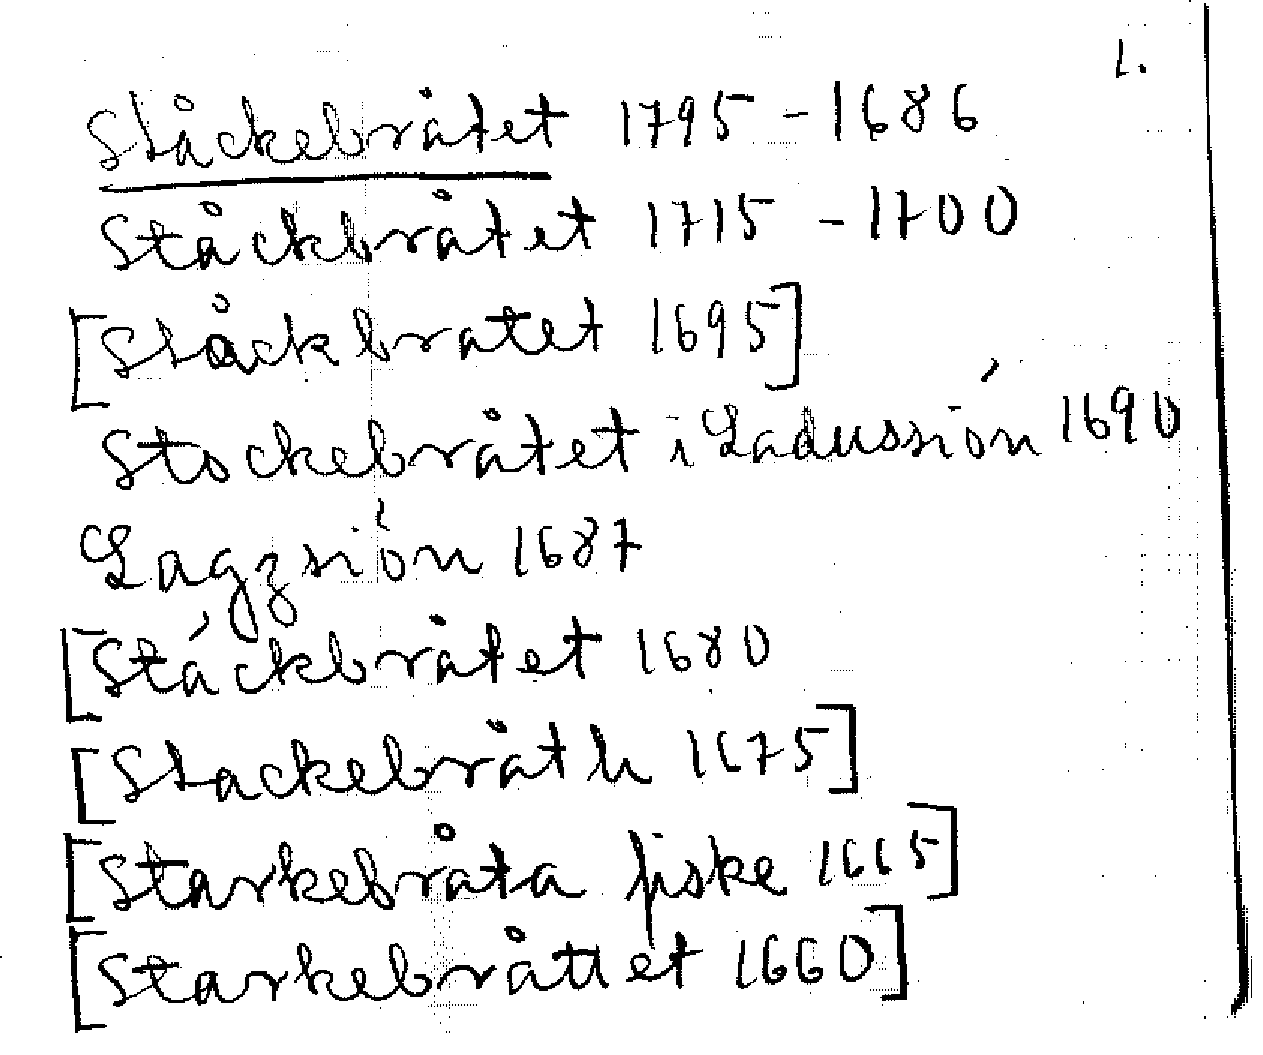 1.
Ståckebråtet 1795 - 1686
Ståckbråtet 1715 - 1700
[Ståckbratet 1695]
Stockebråtet i Ladussión 1690
Lagzsión 1687
[Stáckbråtet 1680
[Stackebråth 1675]
[Starkebråta fiske 1665]
[Starkebråttet 1660]